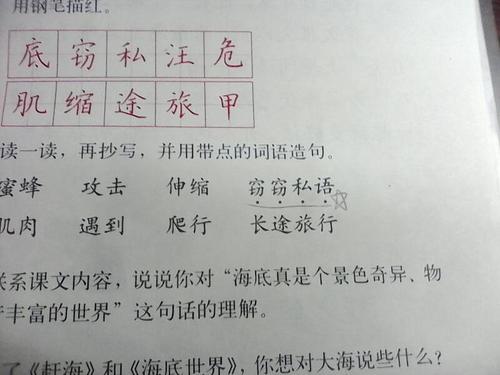 用钢笔描红。
底 窃 私 汪 危
肌 缩 途 旅 甲
读一读，再抄写，并用带点的词语造句。
蜜蜂 攻击 伸缩 窃窃私语
肌肉 遇到 爬行 长途旅行
联系课文内容，说说你对“海底真是个景色奇异、物
产丰富的世界”这句话的理解。
了《赶海》和《海底世界》，你想对大海说些什么？